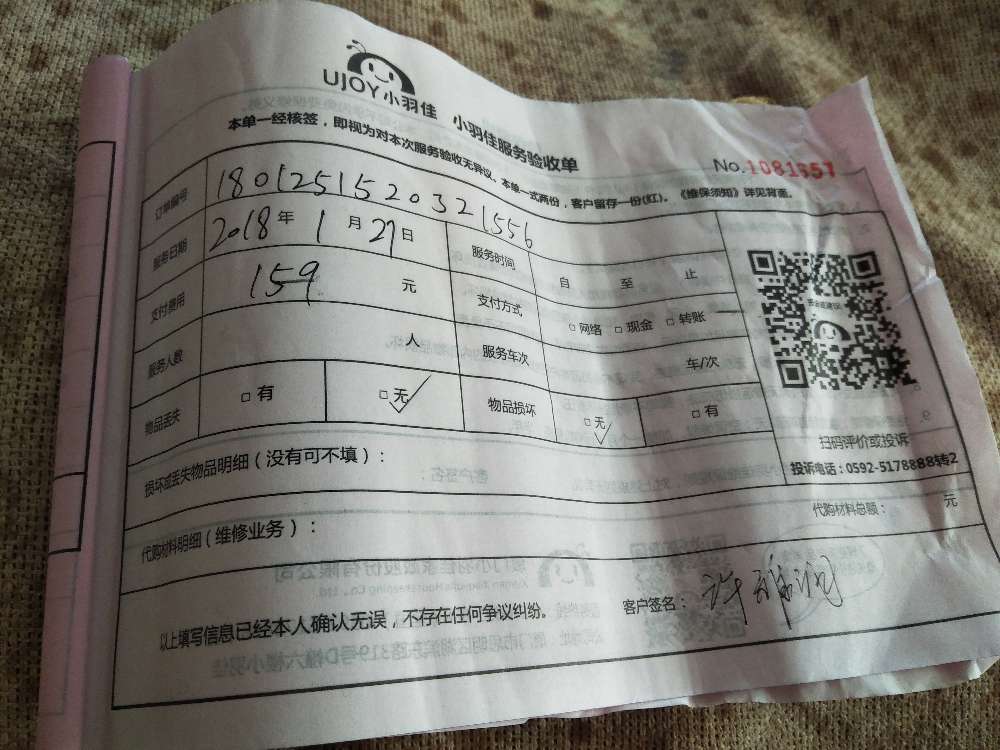 UJOY小羽佳 小羽佳服务验收单
No.1081657
本单一经核签，即视为对本次服务验收无异议、本单一式两份，客户留存一份(红)。《维保须知》详见背面。
订单编号 180125152032 1556
服务日期 2018年 1月 27日 服务时间 自 至 止
支付费用 159 元 支付方式 □网络 □现金 □转账
服务人数 人 服务车次 车/次
物品丢失 □有 □无 ✓ 物品损坏 □无 ✓ □有
扫码评价或投诉
投诉电话：0592-5178888转2
损坏或丢失物品明细（没有可不填）：
代购材料明细（维修业务）： 代购材料总额： 元
以上填写信息已经本人确认无误，不存在任何争议纠纷。 客户签名：